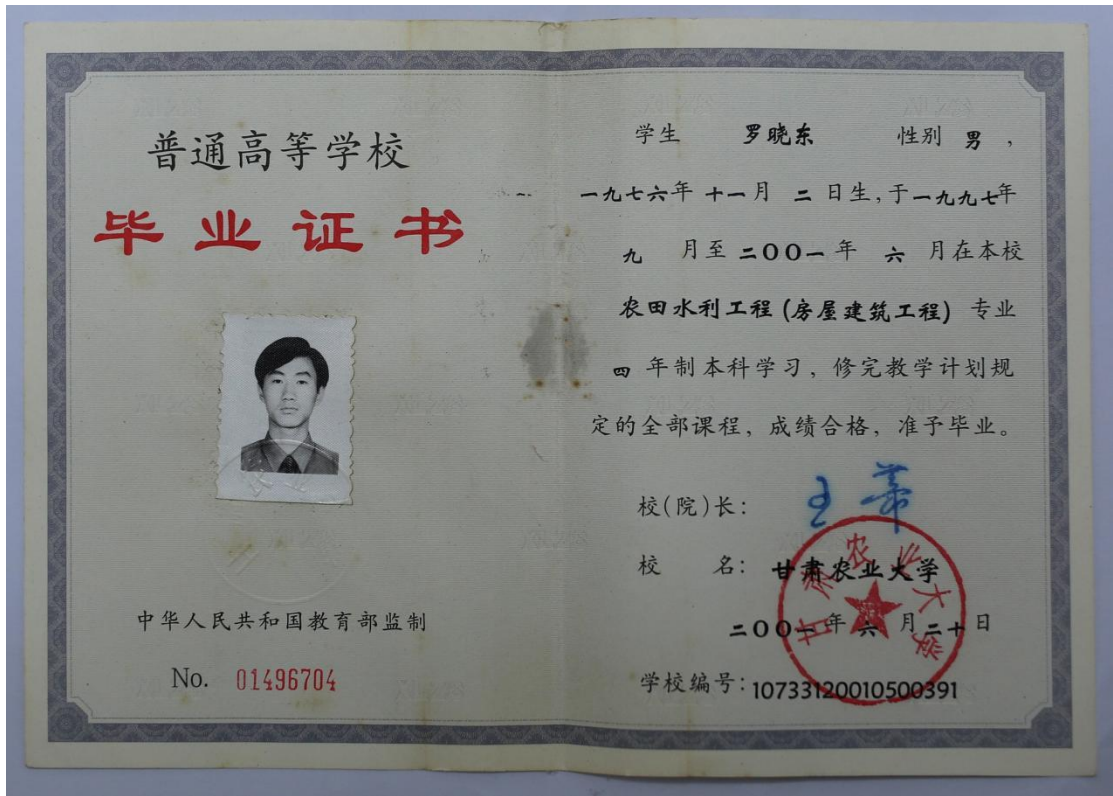 普通高等学校
毕业证书
中华人民共和国教育部监制
No. 01496704
学生 罗晓东 性别 男，
一九七六年 十一月 二 日生，于一九九七年
九 月至 二〇〇一 年 六 月在本校
农田水利工程(房屋建筑工程) 专业
四 年制本科学习，修完教学计划规
定的全部课程，成绩合格，准予毕业。
校(院)长：
校 名：甘肃农业大学
二〇〇一年 六 月二十日
学校编号：10733120010500391
甘肃农业大学